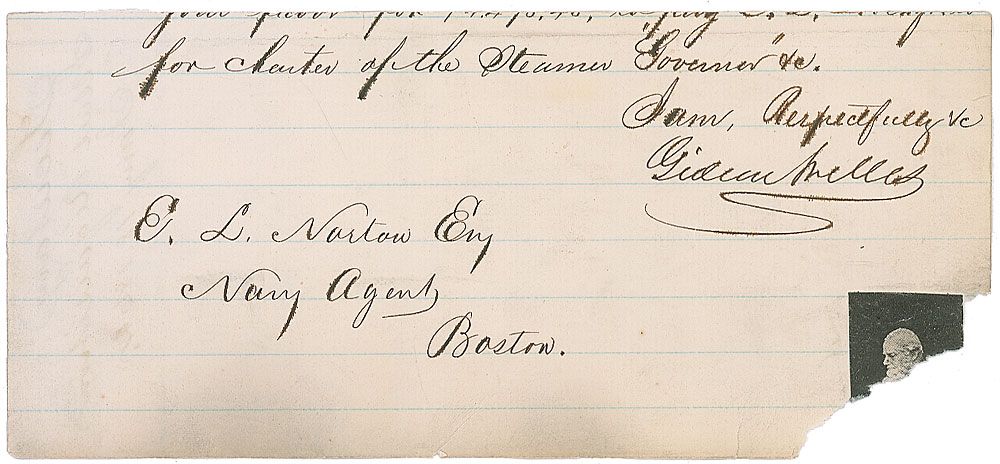 your favor for
for charter of the Steamer "Governor" &c.
I am, Respectfully &c
Gideon Welles
E. L. Norton Esq
Navy Agent
Boston.